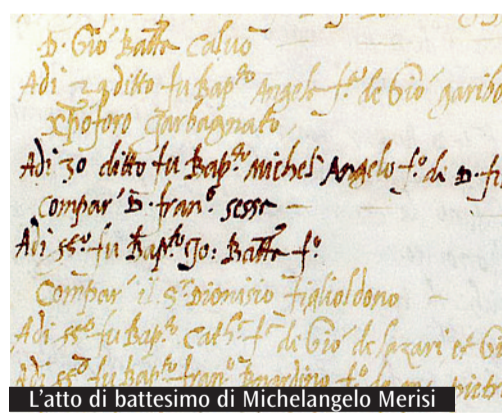 D. Gio Batta Calvo
Adi 29 ditto fu Bap.to Angela f.a de Gio garibo
xpoforo Garbagnato
Adi 30 ditto fu Bap.to Michel Angelo f.o de D. f
Compar D. fran.o sesse
Adi ss.o fu Bap.to Jo: Batta f.o
Compar il S.r Dionisio figliol dono
Adi ss.o fu Bap.to Cath.a f.a de Gio de lazari et G
Adi ss.o fu Bap.to fran.o Bernardino f.o de
L'atto di battesimo di Michelangelo Merisi